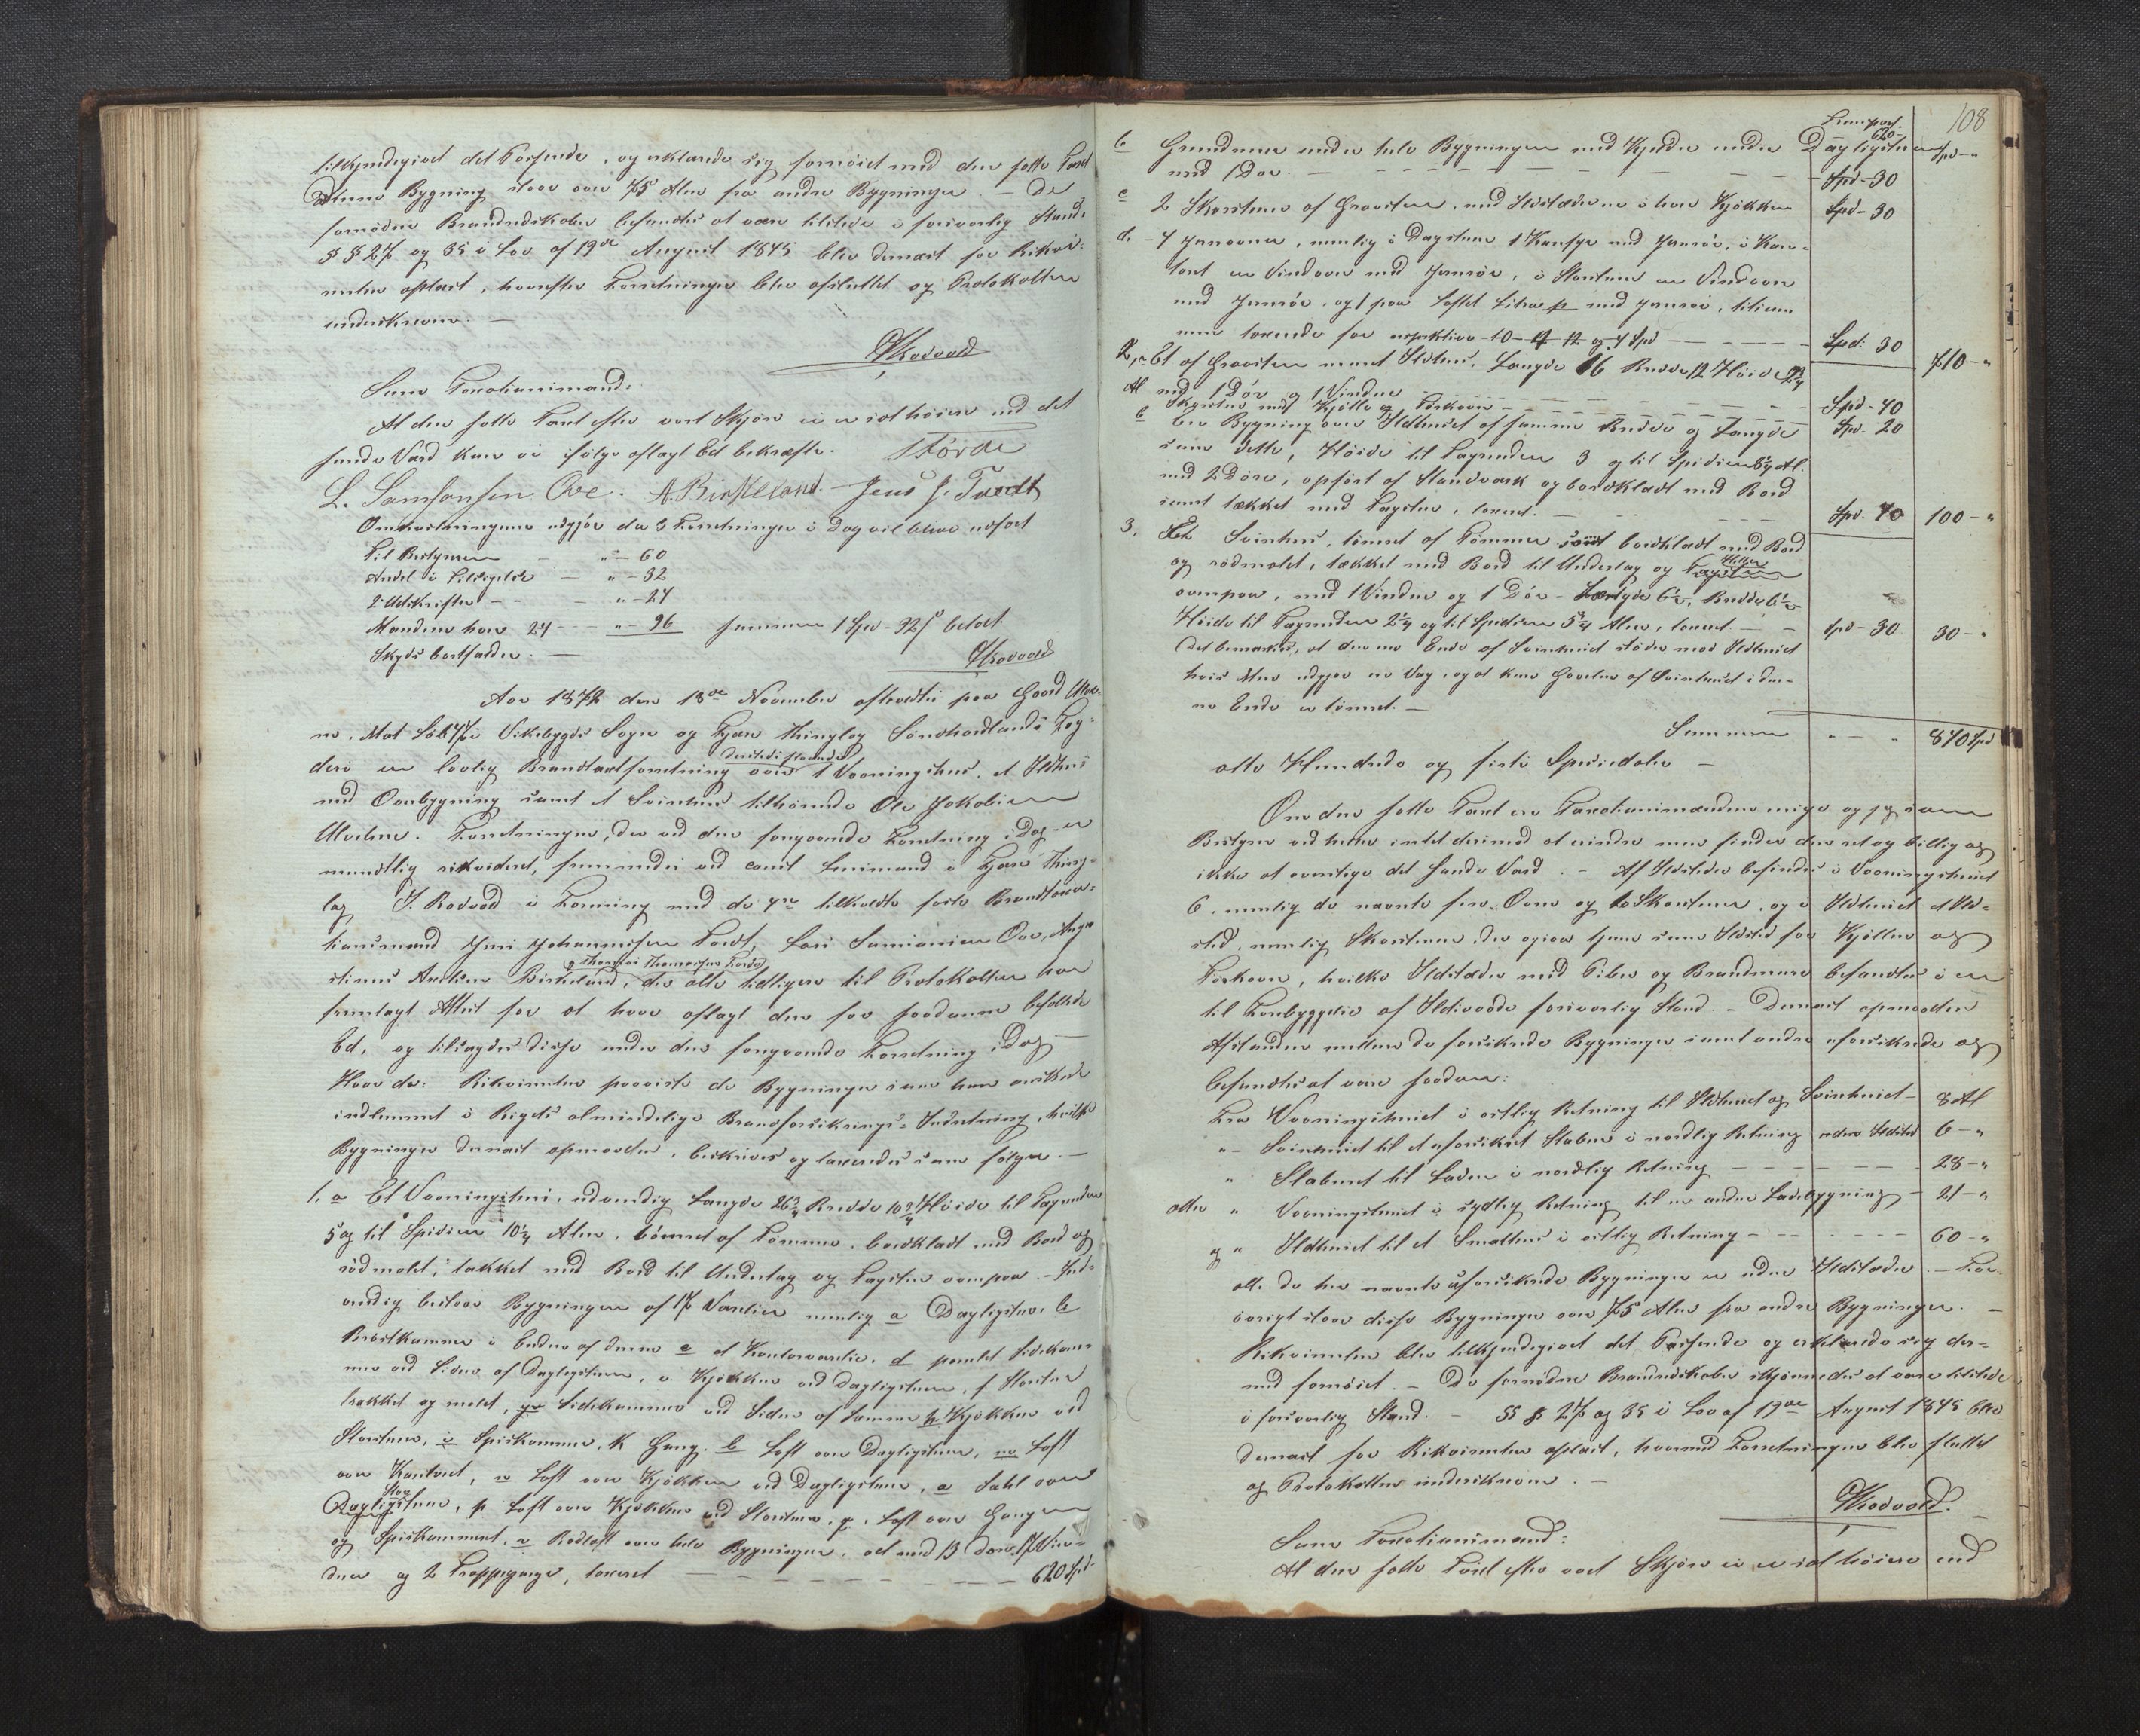 tilkjendegivet det Passerede, og erklærede sig fornöiet med den satte Taxt
Denne Bygning staar over 75 Alen fra andre Bygninger. — De
fornödne Brandredskaber befandtes at være tilstede i forsvarlig Stand.
§ § 27 og 35 i Lov af 19de August 1845 blev dernæst for Rekvi-
renten oplæst, hvorefter Forretningen blev afsluttet og Protokollen
underskreven. —
Rödvold
Som Taxationsmænd:
At den satte Taxt efter vort Skjön ei er ansat höiere end det
sande Værd kan vi ifölge aflagt Ed bekræfte.
L. Samsonsen Ove. A. Birkeland Jens J. Tvedt
Omkostningerne udgjör da 3 Forretninger i Dag vil blive udfört
Til Bestyreren — " — 60
Andel i Tilsigelse — " — 32
2 Udskrifter — — " — 24
Mændene hver 24 — " — 96 Summa 1 Spd — 92 s betalt
Skyds bortfalder. —
Rödvold
Aar 1872 den 18de November afholdtes paa Gaard Ulve-
ne, Mat Löb i Vikebygds Sogn og Fjære Thinglag Söndhordlands Fog-
deri en lovlig Brandtaxtforretning over 1 Vaaningshus, et Ildhus
med Overbygning samt et Svinehus tilhörende Ole Jakobsen
Ulvene. Forretningen, der ved den foregaaende Forretning i Dag er
mundtlig rekvireret, fremmedes ved const Lensmand i Fjære Thing-
lag J. Rödvold i Forening med de 4re tilkaldte faste Brandtaxa-
tionsmænd Jens Johannesen Tvedt, Lars Samsonsen Ove, Aage
Birkeland, og Thomas Thomassen Förde der alle tidligere til Protokollen har
fremlagt Attest for at have aflagt den for saadanne befalede
Ed, og tilsagdes disse under den foregaaende Forretning i Dag —
Hvor da: Rekvirenten paaviste de Bygninger som han önskede
indlemmet i Rigets almindelige Brandforsikrings-Indretning, hvilke
Bygninger dernæst opmaaltes, beskrives og taxeredes som fölger —
1. a Et Vaaningshus, udvendig Længde 26¾ Bredde 10¾ Höide til Tagrenden
5 og til Spidsen 10¼ Alen, tömret af Tömmer, bordklædt med Bord og
rödmalet, tækket med Bord til Underlag og Tagsten ovenpaa. — Ind-
vendig bestaar Bygningen af 17 Værelser nemlig a Dagligstue, b
Bröstkammer i Enden af denne c et Kontorværelse, d panelet Sidekam-
mer ved Siden af Dagligstuen, e Kjökken ved Dagligstuen, f Storstue
trækket og malet, g Sidekammer ved Siden af samme h Kjökken ved
Storstuen, i Spiskammer, k Gang. l Loft over Dagligstuen, m Loft
over Kontoret, n Loft over Kjökken ved Dagligstuen, o Sahl over
Storstuen, p Loft over Kjökken ved Storstuen, q. Loft over Gangen
og Spiskammeret, r Rödloft over hele Bygningen, alt med 13 Döre, 17 Vin-
duer og 2 Trappegange, taxeret — — — — — 620 Spd
108
Transport.
620
b Grundmur under hele Bygningen med Kjelder under Dagligstuen Spd — "
med 1 Dör. — — — — — — — — Spd — 30
c 2 Skorstene af Graasten, med Ildstæderne i hver Kjökken Spd — 30
d. 4 Jernovne, nemlig i Dagstuen 1 Etages med Jernrör, i Kon-
toret en Vindovn med Jernrör, i Storstuen en Vindovn
med Jernrör, og 1 paa Loftet Litra p med Jernrör, tilsam-
men taxerede for respektive 10 — 4 — 12 og 4 Spd — — — — Spd. 30 710 — "
2, a Et af Graasten muret Ildhus, Længde 16 Bredde 12 Höide 2¾
Al med 1 Dör og 1 Vindue — — — — — Spd — 40
b Skorsten med Kjölle og Törkovn — — — — Spd — 20
c En Bygning over Ildhuset af samme Bredde og Længde
som dette, Höide til Tagrenden 3 og til Spidsen Al.
med 2 Döre, opfört af Standværk og bordklædt med Bord
samt tækket med Tagsten, taxeret — — — Spd. 40 100 — "
3. Et Svinehus, tömret af Tömmer samt bordklædt med Bord
og rödmalet, tækket med Bord til Underlag og Heller
ovenpaa, med 1 Vindue og 1 Dör — Længde 6½, Bredde 6½
Höide til Tagrenden 2¼ og til Spidsen 5¾ Alen, taxeret — — Spd — 30 30 — "
Det bemærkes, at den ene Ende af Svinehuset stöder mod Ildhuset
hvis Mur udgjör en Væg, og at kun Gavlen af Svinehuset i den-
ne Ende er tömret. —
Summa " — " 840 Spd
otte Hundrede og firti Speciedaler —
Om den satte Taxt er Taxationsmændene enige og jeg som
Bestyrer ved heller intet derimod at erindre men finder den ret og billig og
ikke at overstige det sande Værd. — Af Ildsteder befindes i Vaaningshuset
6, nemlig de nævnte fire Ovne og to Skorstene, og i Ildhuset et Ild-
sted, nemlig Skorstenen, der ogsaa tjener som Ildsted for Kjöllen og
Törkovn, hvilke Ildstæder med Piber og Brandmure befandtes i en
til Forebyggelse af Ildsvaade forsvarlig Stand. — Dernæst opmaaltes
Afstanden mellem de forsikrede Bygninger samt andre uforsikrede og
befandtes at være saadan:
Fra Vaaningshuset i östlig Retning til Ildhuset og Svinehuset — 8 Al
" — Svinehuset til et uforsikret Stabur i nordlig Retning uden Ildsted 6 — "
" Staburet til Laden i nordlig Retning — — — — — 28 — "
atter " Vaaningshuset i sydlig Retning til en anden Ladebygning — 21 — "
og " Ildhuset til et Smalehus i östlig Retning — — — — — 60 — "
alle de her nævnte uforsikrede Bygninger er uden Ildstæder. — For-
övrigt staar disse Bygninger over 75 Alen fra andre Bygninger. —
Rekvirenten blev tilkjendegivet det Passerede og erklærede sig der-
med fornöiet. — De fornödne Brandredskaber skjönnedes at være tilstede
i forsvarlig Stand. — §§ § 27 og 35 i Lov af 19de August 1845 blev
dernæst for Rekvirenten oplæst, hvormed Forretningen blev sluttet
og Protokollen underskreven. —
Rödvold.
Som Taxationsmænd:
At den satte Taxt efter vort Skjön ei er ansat höiere end